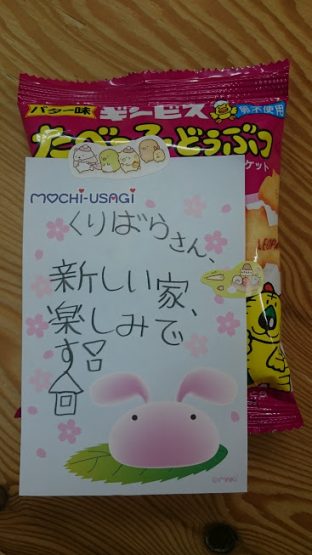 バター味
ギンビス
卵不使用
たべっ子どうぶつ
ケット
LEOPA
MOCHI-USAGI
くりばらさん、
新しい家、
楽しみで
す